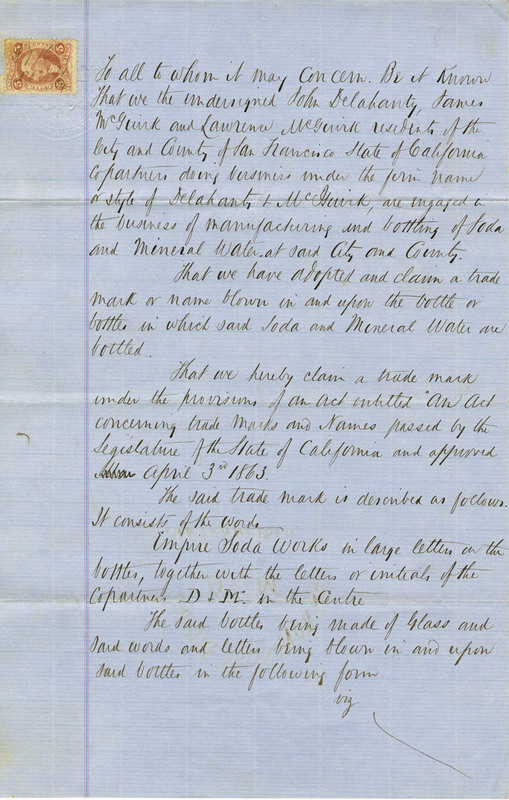 5 5
To all to whom it may Concern. Be it Known
That we the undersigned John Delahanty, James
McGuirk and Lawrence McGuirk residents of the
City and County of San Francisco State of California
Copartners doing business under the firm name
or style of Delahanty & McGuirk, are engaged in
the business of manufacturing and bottling of Soda
and Mineral Water at said City and County.
That we have adopted and claim a trade
mark or name blown in and upon the bottle or
bottles in which said Soda and Mineral Water are
bottled.
That we hereby claim a trade mark
under the provisions of an act entitled "An Act
concerning trade Marks and Names passed by the
Legislature of the State of California and approved
April 3rd 1863.
The said trade mark is described as follows.
It consists of the words
Empire Soda Works in large letters on the
bottles, together with the letters or initials of the
Copartners D & M. in the Centre
The said bottles being made of Glass and
said words and letters being blown in and upon
said bottles in the following form
viz